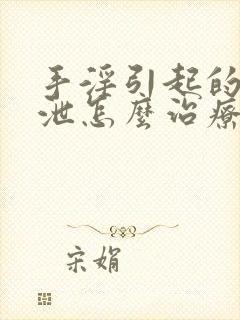 手淫引起的
泄怎麼治療
宋娟